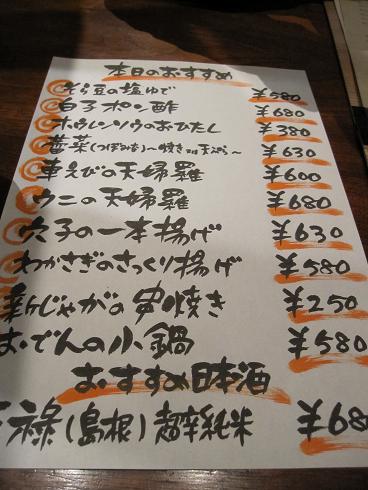 本日のおすすめ
そら豆の塩ゆで ¥580
白子ポン酢 ¥680
ホウレンソウのおひたし ¥380
蕾菜(つぼみな)〜焼きor天ぷら〜 ¥630
車えびの天婦羅 ¥600
ウニの天婦羅 ¥680
穴子の一本揚げ ¥630
わかさぎのさっくり揚げ ¥580
新じゃがの串焼き ¥250
おでんの小鍋 ¥580
おすすめ日本酒
禄(島根)超辛純米 ¥68